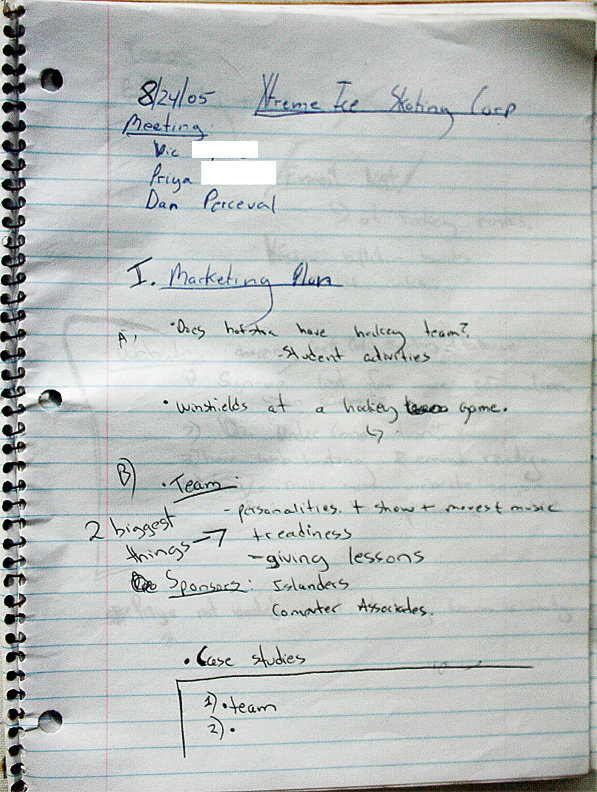 8/24/05 Xtreme Ice Skating Corp
Meeting:
Vic
Priya
Dan Perceval
I. Marketing Plan
A.
• Does hofstra have hockey team?
- Student activities
• Winshields at a hockey game.
B) • Team:
- personalities. + show + moves + music
2 biggest things → + readiness
- giving lessons
Sponsors: Islanders
Computer Associates.
• Case studies
1) • team
2) •